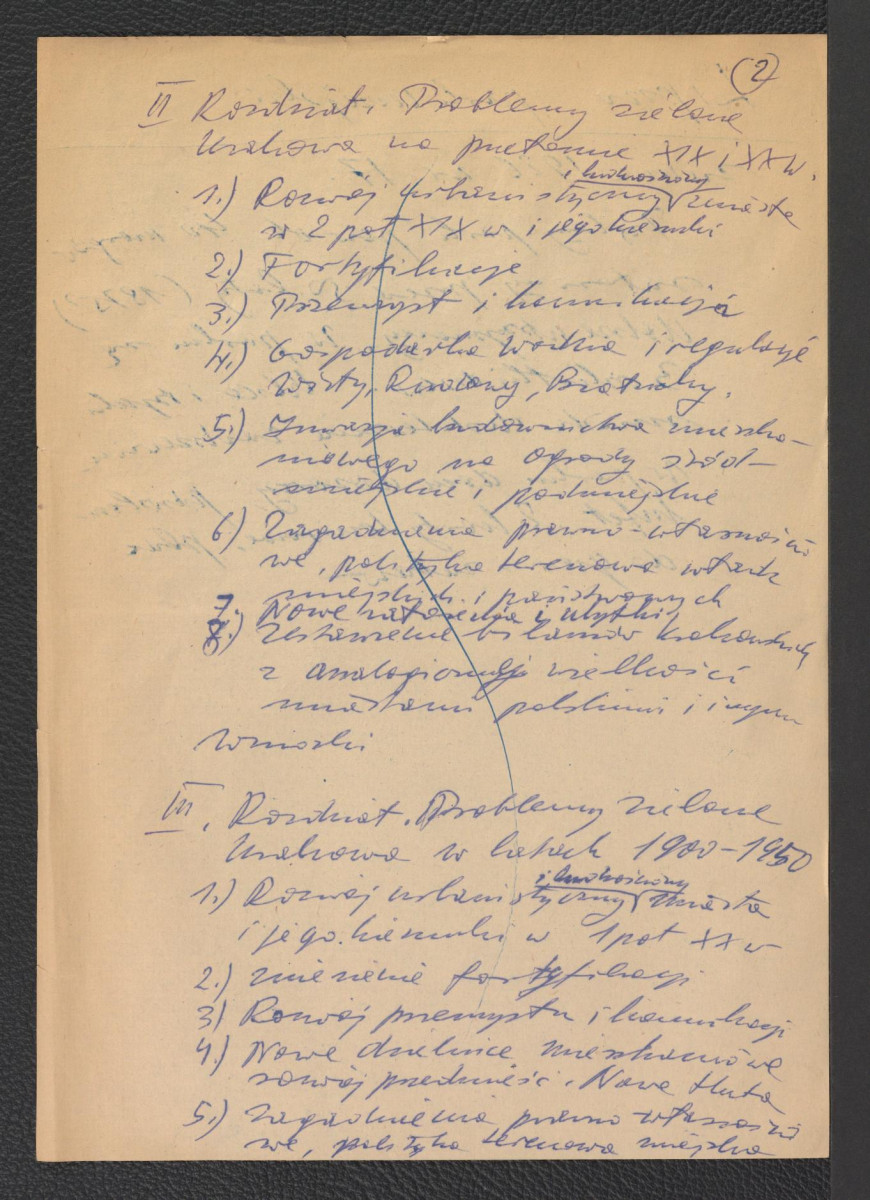 (2)
II Rozdział. Problemy zielone
Krakowa na przełomie XIX i XX w.
i ludnościowy
1.) Rozwój urbanistyczny miasta
w 2 poł XIX w i jego kierunki
2.) Fortyfikacje
3.) Przemysł i komunikacja
4.) Gospodarka wodna i regulacje
Wisły, Rudawy, Białuchy.
5.) Inwazja budownictwa mieszka-
niowego na ogrody śród-
miejskie i podmiejskie
6) Zagadnienia prawno-własnościo
we, polityka terenowa władz
miejskich i państwowych
7. Nowe założenia i użytki
8.) Zestawienie bilansów krakowskich
z analogicznej wielkości
miastami polskimi i innym
Wnioski
III. Rozdział. Problemy zielone
Krakowa w latach 1900-1950
i ludnościowy
1.) Rozwój urbanistyczny miasta
i jego kierunki w 1 poł XX w
2.) zniesienie fortyfikacji
3) Rozwój przemysłu i komunikacji
4.) Nowe dzielnice mieszkaniowe
rozwój przedmieść. Nowa Huta
5.) zagadnienia prawno-własności
we, polityka terenowa miejska